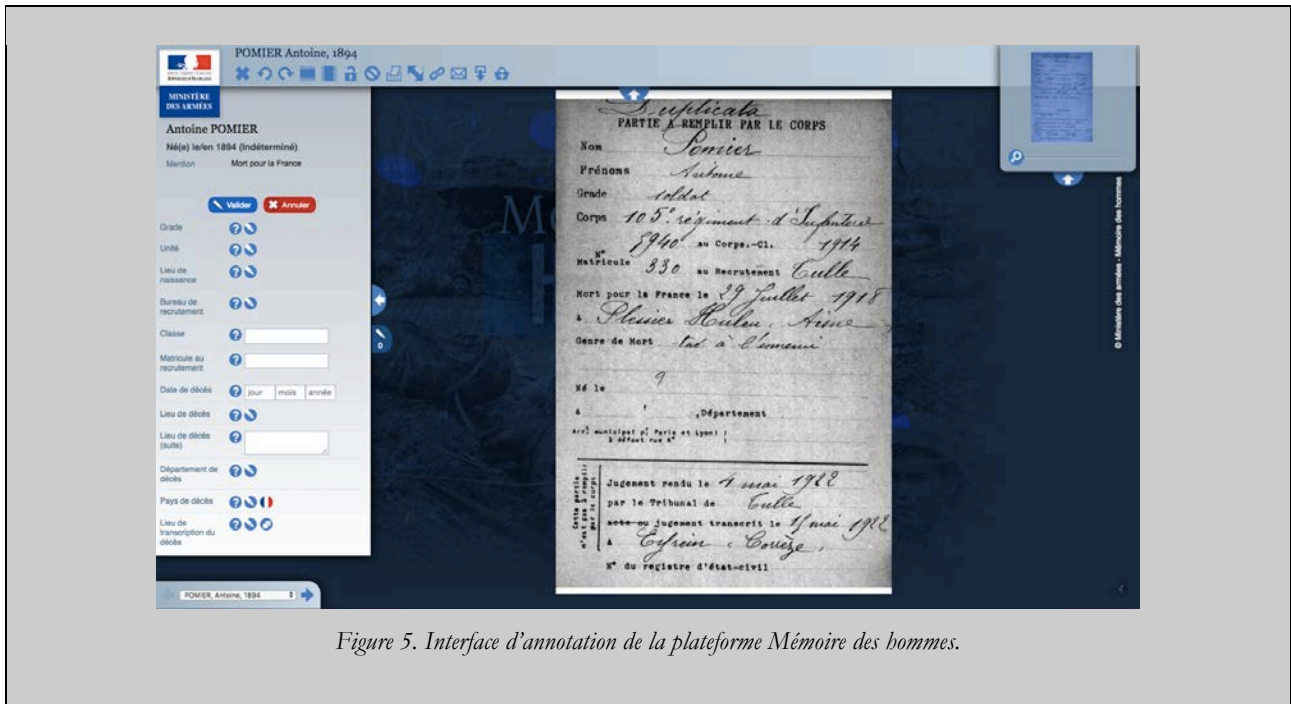 POMIER Antoine, 1894
MINISTÈRE
DES ARMÉES
Antoine POMIER
Né(e) le/en 1894 (Indéterminé)
Mention Mort pour la France
Valider Annuler
Grade
Unité
Lieu de
naissance
Bureau de
recrutement
Classe
Matricule au
recrutement
Date de décès jour mois année
Lieu de décès
Lieu de décès
(suite)
Département de
décès
Pays de décès
Lieu de
transcription du
décès
POMIER, Antoine, 1894
0
Duplicata
PARTIE A REMPLIR PAR LE CORPS
Nom Pomier
Prénoms Antoine
Grade soldat
Corps 105e régiment d'Infanterie
N° 8940 au Corps.-Cl. 1914
Matricule 330 au Recrutement Tulle
Mort pour la France le 29 Juillet 1918
à Plessier Huleu, Aisne
Genre de Mort tué à l'ennemi
Né le 9
à ,Département
Arrt municipal (pr Paris et Lyon)
à défaut rue et N°
Cette partie
n'est pas à remplir
par le corps
Jugement rendu le 4 mai 1922
par le Tribunal de Tulle
acte ou jugement transcrit le 15 mai 1922
à Eyrein, Corrèze,
N° du registre d'état-civil
© Ministère des armées - Mémoire des hommes
Figure 5. Interface d'annotation de la plateforme Mémoire des hommes.